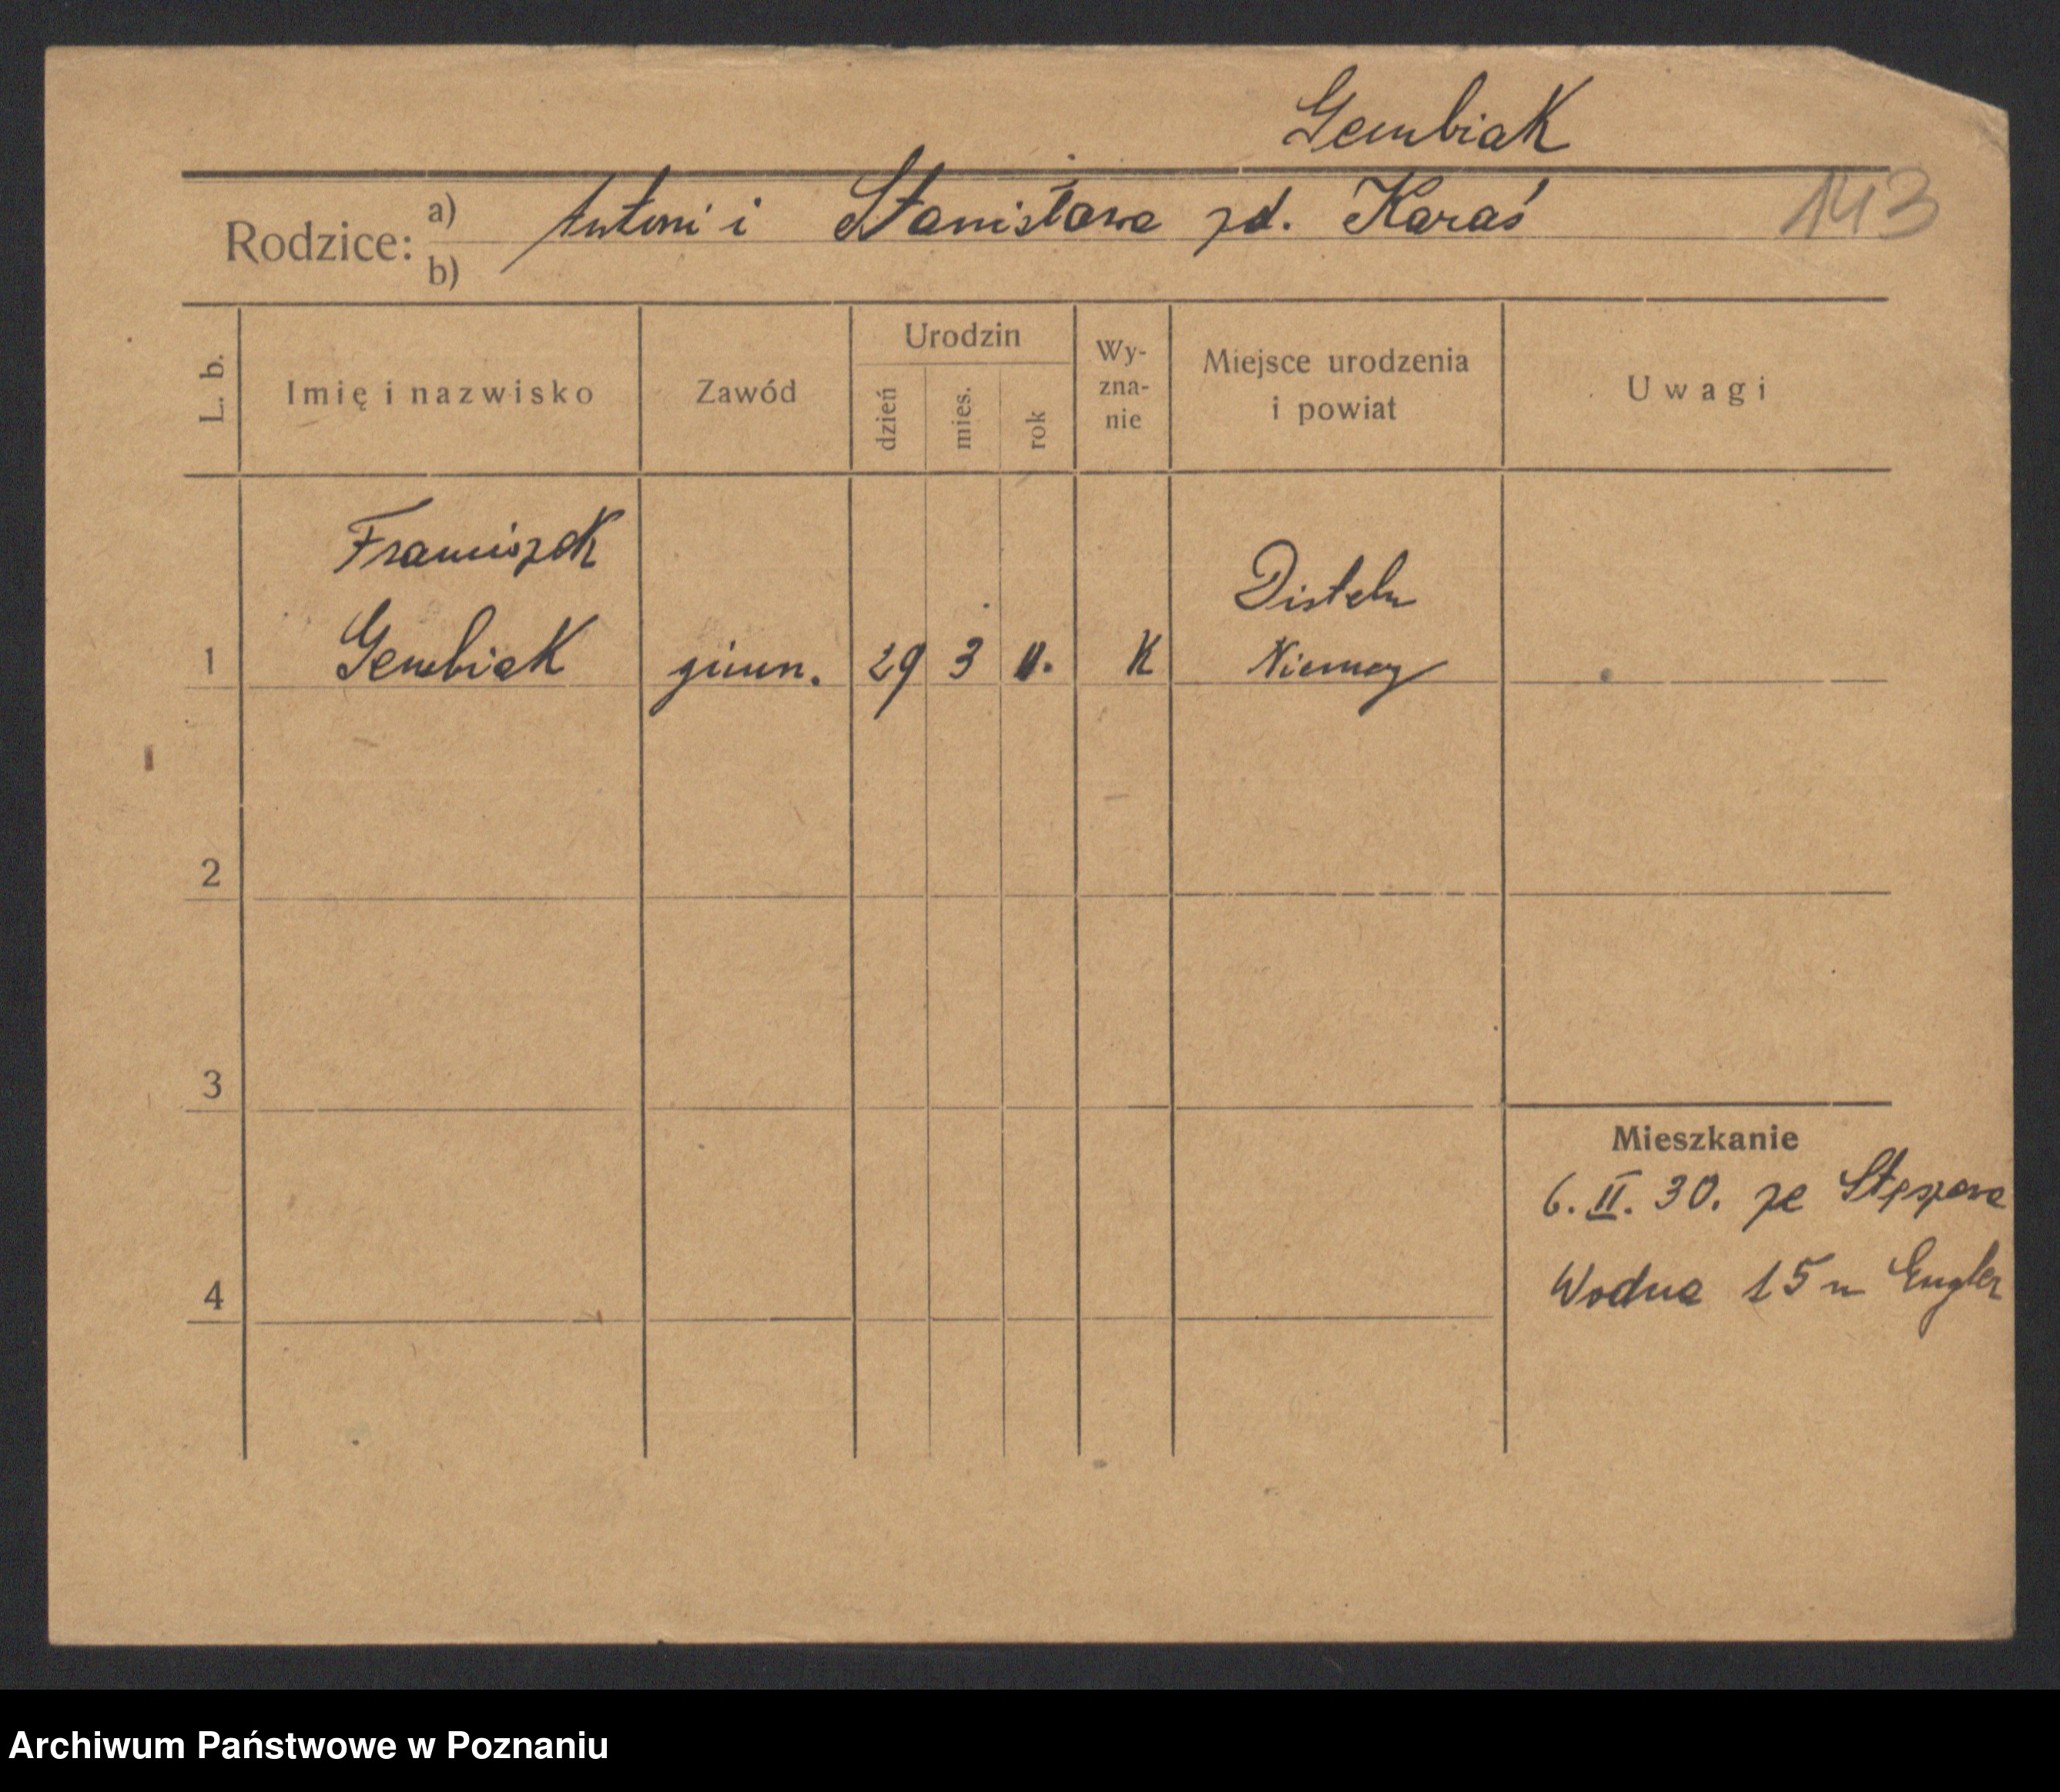 Gembiak
143
Rodzice: a) Antoni i Stanisława zd. Karaś
b)
L. b.
Imię i nazwisko
Zawód
Urodzin
dzień
mies.
rok
Wy-
zna-
nie
Miejsce urodzenia
i powiat
Uwagi
Franciszek
Disteln
1 Gembiak gimn. 29 3 11. K Niemcy
2
3
4
Mieszkanie
6. II. 30. ze Stęszewa
Wodna 15 u Engler
Archiwum Państwowe w Poznaniu